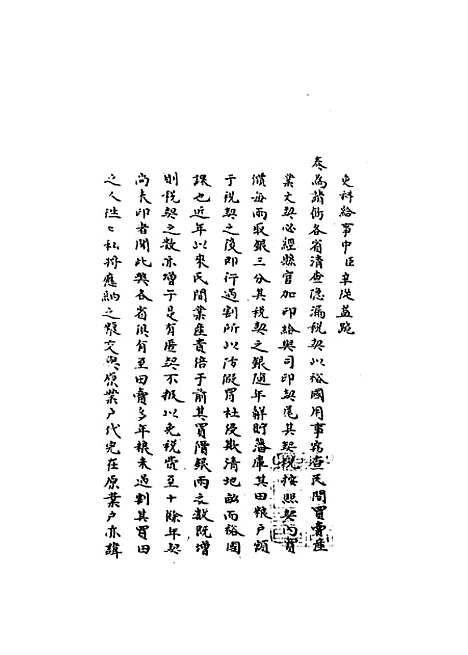 吏科給事中臣辛從益跪
奏為請飭各省清查隱漏稅契以裕國用事竊查民間買賣產
業文契必經縣官加印給與司印契尾其契稅按照契內買
價每両取銀三分其稅契之銀随年解貯藩庫其田粮戶頭
于稅契之後即行過割所以防假冒杜侵欺清地畝而裕國
課也近年以來民間業產貴倍于前其買價銀両之數既增
則稅契之數亦增于是有匿契不报以免稅貲至十餘年契
尚未印者聞此獘各省俱有至田賣多年粮未過割其買田
之人往々私將應納之糧交與原業戶代完在原業戶亦諱